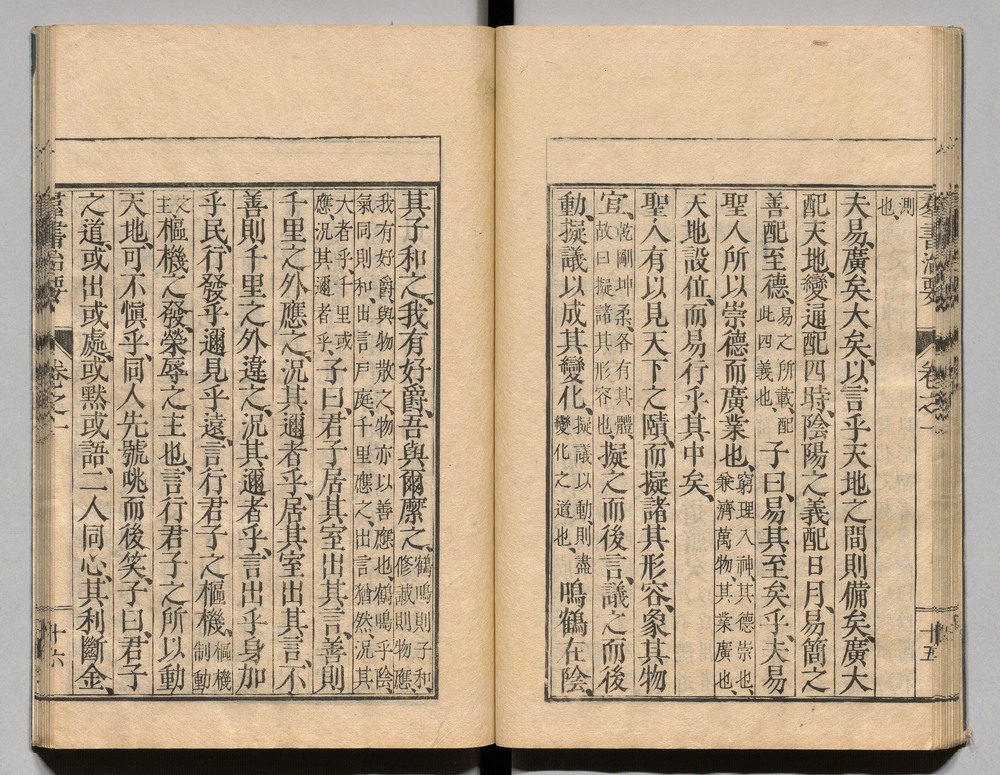 羣書治要 卷之一 十五
測也、
夫易、廣矣大矣、以言乎天地之間則備矣、廣大
配天地、變通配四時、陰陽之義配日月、易簡之
善配至德、易之所載、配此四義也、子曰、易其至矣乎、夫易
聖人所以崇德而廣業也、窮理入神、其德崇也、兼濟萬物、其業廣也、
天地設位、而易行乎其中矣、
聖人有以見天下之賾、而擬諸其形容、象其物
宜、乾剛坤柔、各有其體、故曰擬諸其形容也、擬之而後言、議之而後
動、擬議以成其變化、擬議以動、則盡變化之道也、鳴鶴在陰、
其子和之、我有好爵、吾與爾縻之、鶴鳴則子和、修誠則物應、
我有好爵、與物散之、物亦以善應也、鶴鳴乎陰、氣同則和、出言戶庭、千里應之、出言猶然、況其
大者乎、千里或應、況其邇者乎、子曰、君子居其室、出其言、善則
千里之外應之、況其邇者乎、居其室、出其言、不
善則千里之外違之、況其邇者乎、言出乎身、加
乎民、行發乎邇、見乎遠、言行君子之樞機、樞機制動
之主、樞機之發、榮辱之主也、言行君子之所以動
天地、可不愼乎、同人先號咷而後笑、子曰、君子
之道、或出或處、或默或語、二人同心、其利斷金、
羣書治要 卷之一 十六